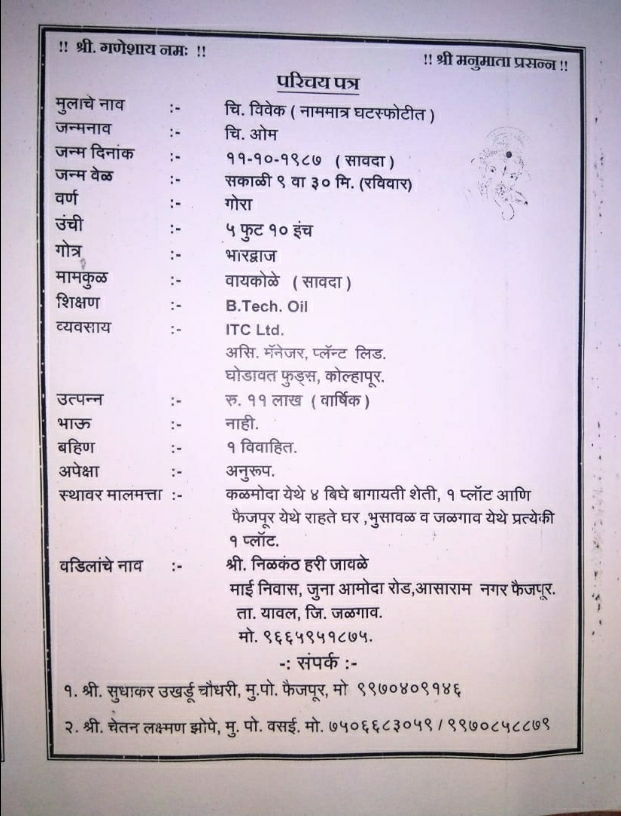 !! श्री. गणेशाय नमः !!
!! श्री मनुमाता प्रसन्न !!
परिचय पत्र
मुलाचे नाव :- चि. विवेक ( नाममात्र घटस्फोटीत )
जन्मनाव :- चि. ओम
जन्म दिनांक :- ११-१०-१९८७ ( सावदा )
जन्म वेळ :- सकाळी ९ वा ३० मि. (रविवार)
वर्ण :- गोरा
उंची :- ५ फुट १० इंच
गोत्र :- भारद्वाज
मामकुळ :- वायकोळे ( सावदा )
शिक्षण :- B.Tech. Oil
व्यवसाय :- ITC Ltd.
असि. मॅनेजर, प्लॅन्ट लिड.
घोडावत फुड्स, कोल्हापूर.
उत्पन्न :- रु. ११ लाख ( वार्षिक )
भाऊ :- नाही.
बहिण :- १ विवाहित.
अपेक्षा :- अनुरूप.
स्थावर मालमत्ता :- कळमोदा येथे ४ बिघे बागायती शेती, १ प्लॉट आणि
फैजपूर येथे राहते घर ,भुसावळ व जळगाव येथे प्रत्येकी
१ प्लॉट.
वडिलांचे नाव :- श्री. निळकंठ हरी जावळे
माई निवास, जुना आमोदा रोड,आसाराम नगर फैजपूर.
ता. यावल, जि. जळगाव.
मो. ९६६५९५१८७५.
-: संपर्क :-
१. श्री. सुधाकर उखर्डू चौधरी, मु.पो. फैजपूर, मो ९९७०४०९१४६
२. श्री. चेतन लक्ष्मण झोपे, मु. पो. वसई. मो. ७५०६६८३०५९ / ९९७०८५८८७९